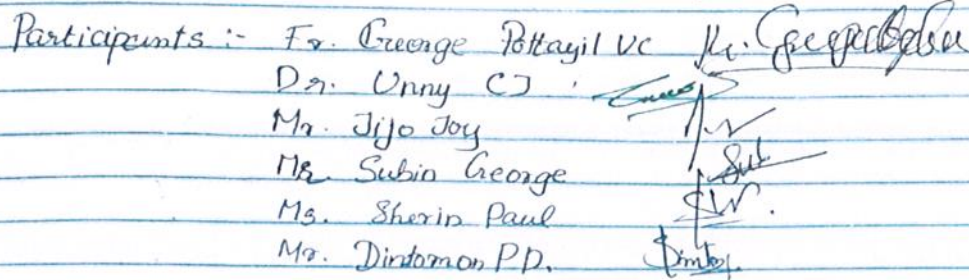 Participants :- Fr. George Pottayil VC
Dr. Unny CJ :
Mr. Jijo Joy
Mr. Subin George
Ms. Sherin Paul
Mr. Dintomon P.D.